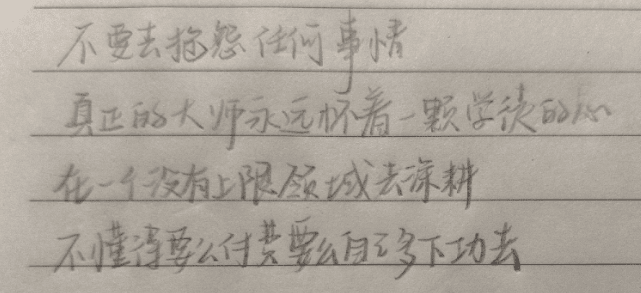 不要去抱怨任何事情
真正的大师永远怀着一颗学徒的心
在一个没有上限领域去深耕
不懂得要么付费要么自己多下功夫